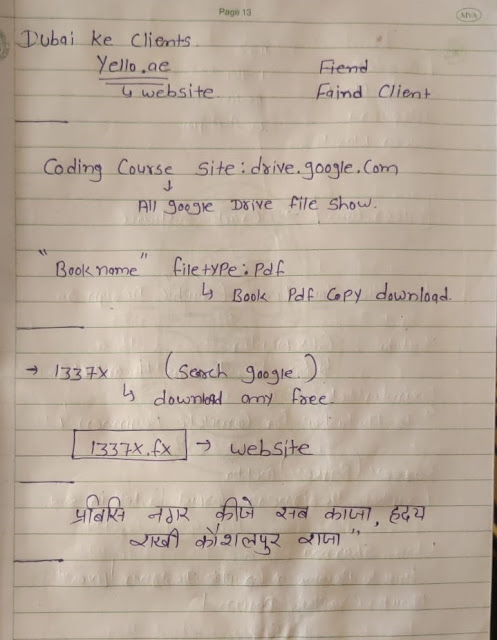 Page 13
MVA
Dubai ke Clients.
Yello.ae
Fiend
↳ website
Faind Client
Coding Course site:drive.google.com
↓
All google Drive file show.
"Book name" filetype:Pdf
↳ Book Pdf Copy download.
→ 1337x (Search google.)
↳ download any free
1337x.fx → website
प्रबिसि नगर कीजे सब काजा, हृदय
राखी कौशलपुर राजा"